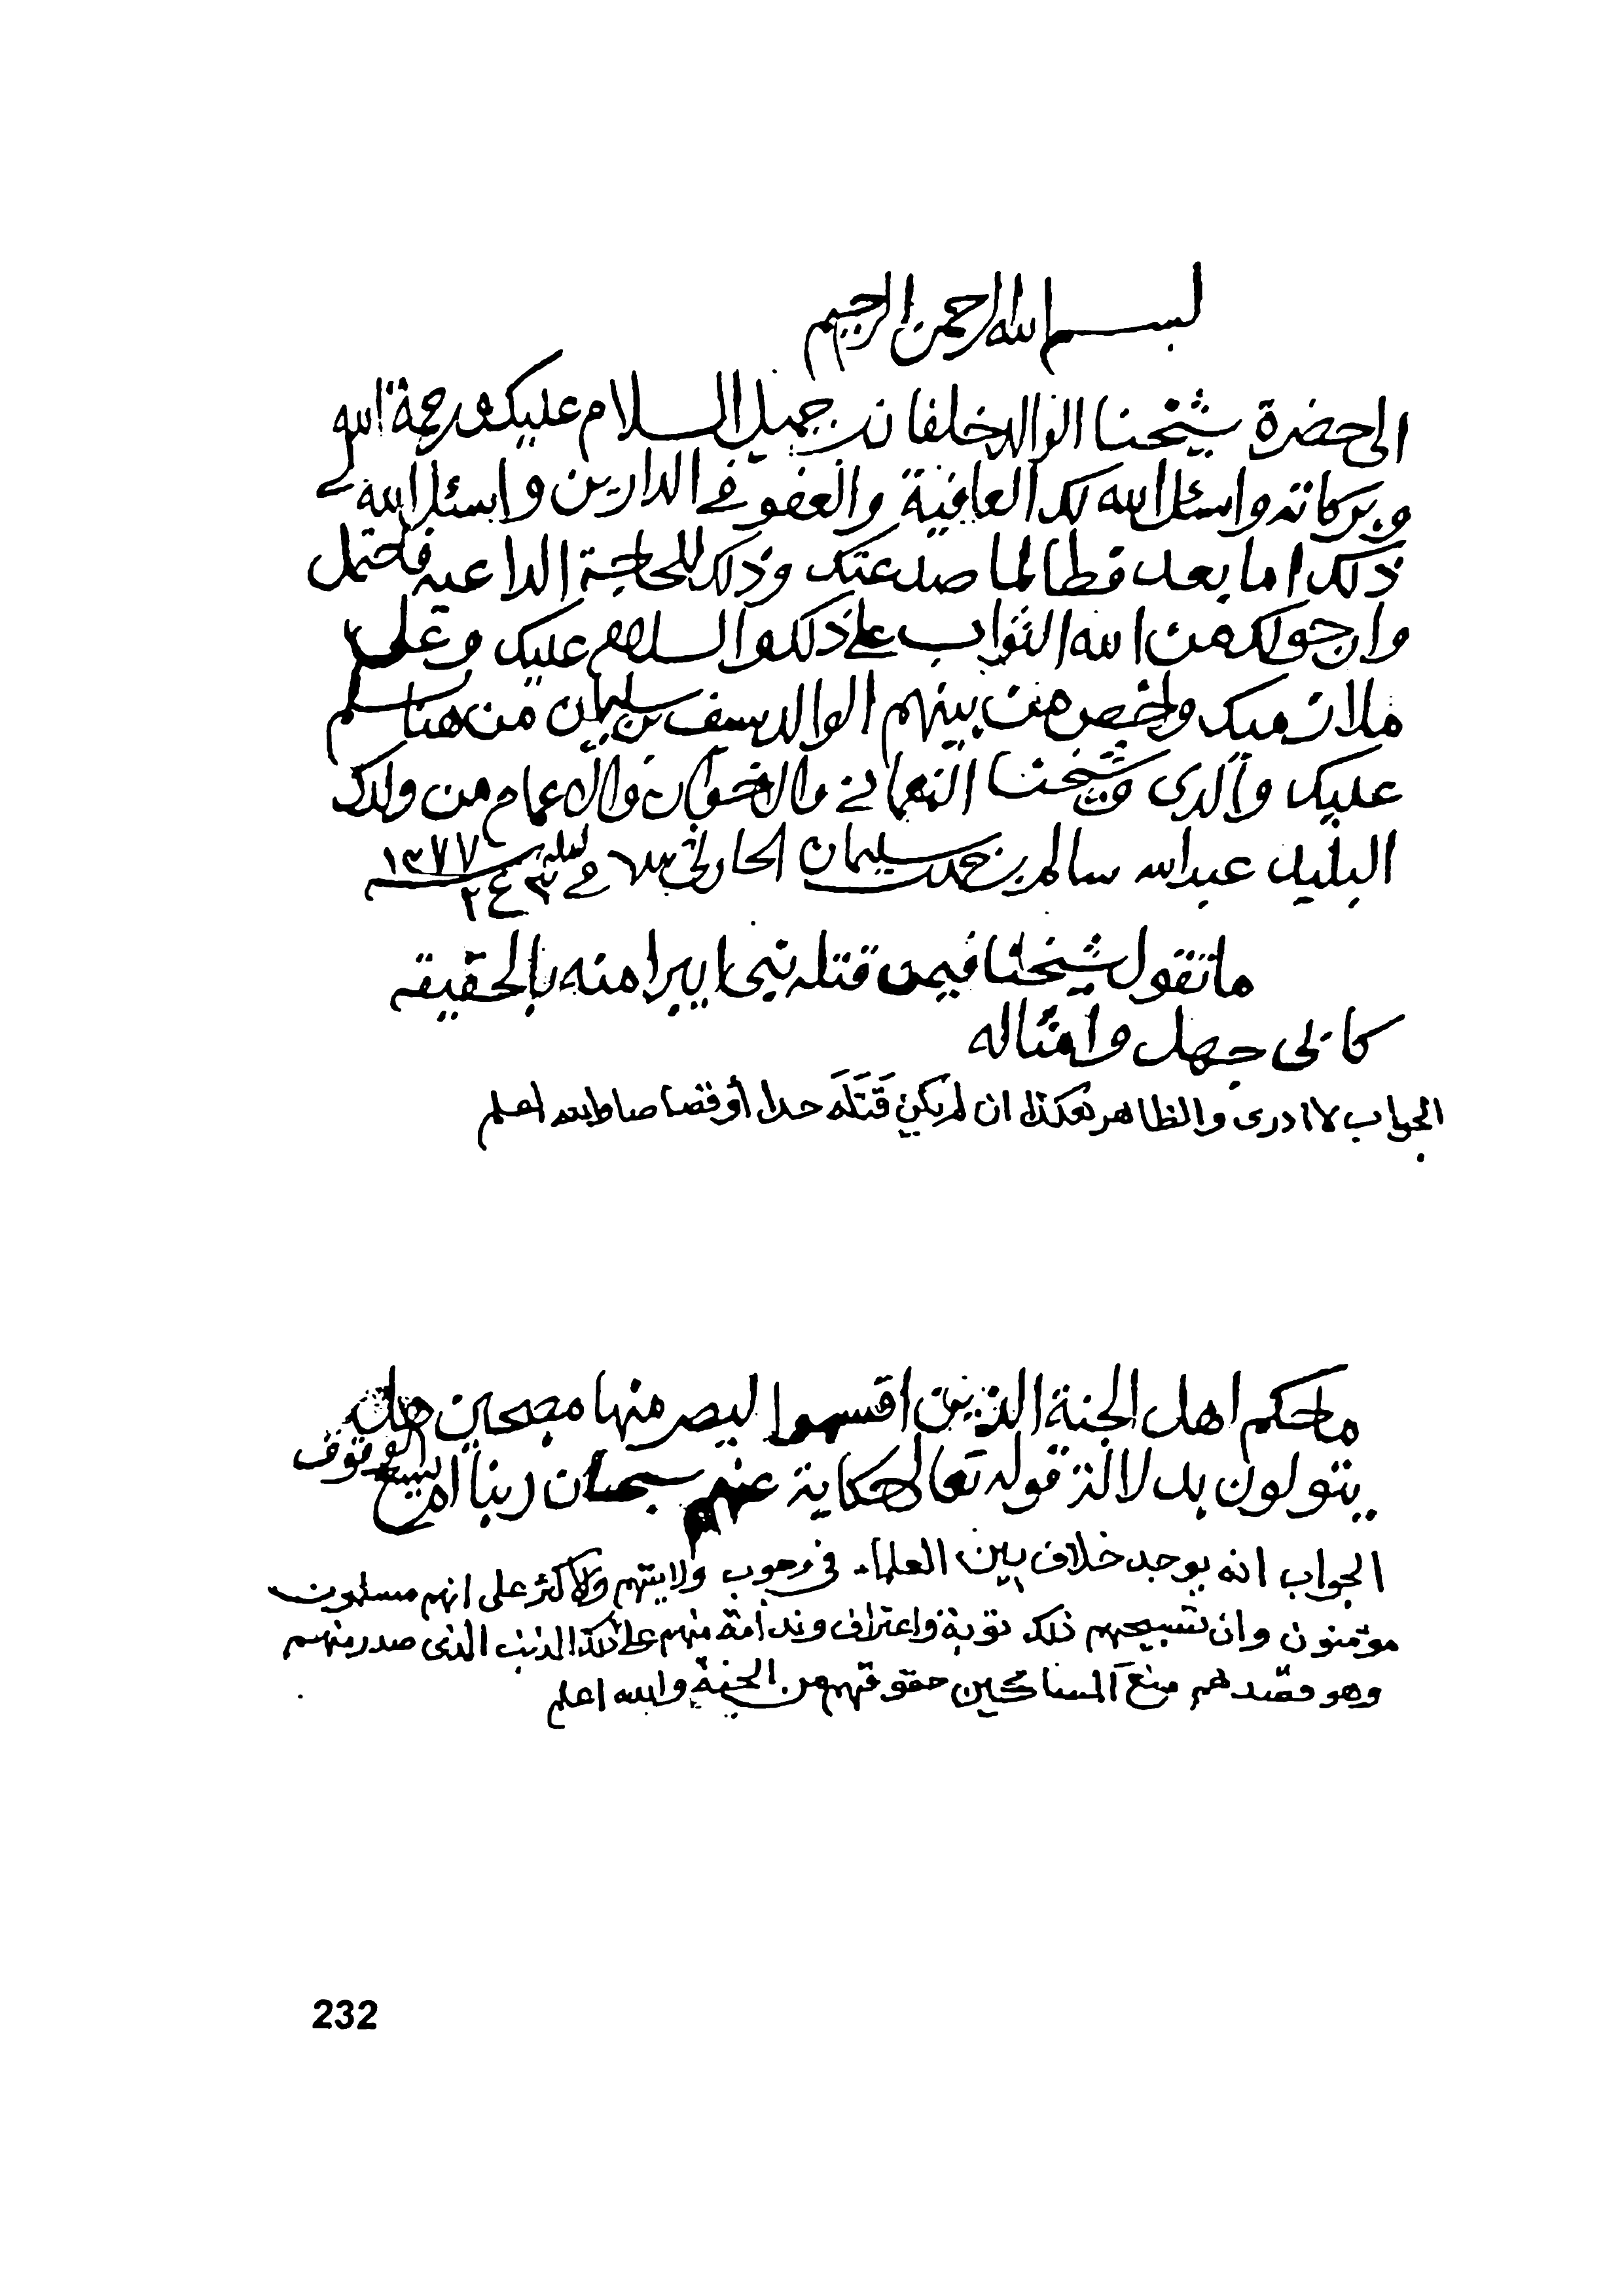 بسم الله الرحمن الرحيم
الى حضرة شيخنا الوالد خلفان بن جميل السلام عليك ورحمة الله
وبركاته واسئل الله لك العافية والعفو في الدارين واسئل الله لي
ذلك اما بعد فطالما صدعتك وذلك للحاجة الداعيه فاحتمل
وارجو لك من الله الثواب على ذلك والسلام عليك وعلى
ملازميك واخص من بينهم الوالد سيف بن سليمان من هنا يسلم
عليك والدي وشيخنا النعماني والاخوان والاعمام من ولدك
البليد عبدالله سالم بن حمد بن سليمان الحارثي بيده في ليلة ٣ ع ٢ ١٣٧٧
ما تقول شيخنا فيمن قتله نبي ايبرا منه بالحقيقه
كابي جهل وامثاله
الجواب لا ادري والظاهر هكذا ان لم يكن قَتَلَه حدا أو قصاصا والله اعلم
ما حكم اهل الجنة الذين اقسموا ليصرمنها مصبحين هل
يتولون بدلالة قوله تعالى حكاية عنهم سبحان ربنا ام يسع الوقوف
الجواب انه يوجد خلاف بين العلماء في وجوب ولايتهم والاكثر على انهم مسلمون
مؤمنون وان تسبيحهم ذلك توبة واعتراف وندامة منهم على ذلك الذنب الذي صدر منهم
وهو قصدهم منع المساكين حقوقهم من الجنة والله اعلم
232